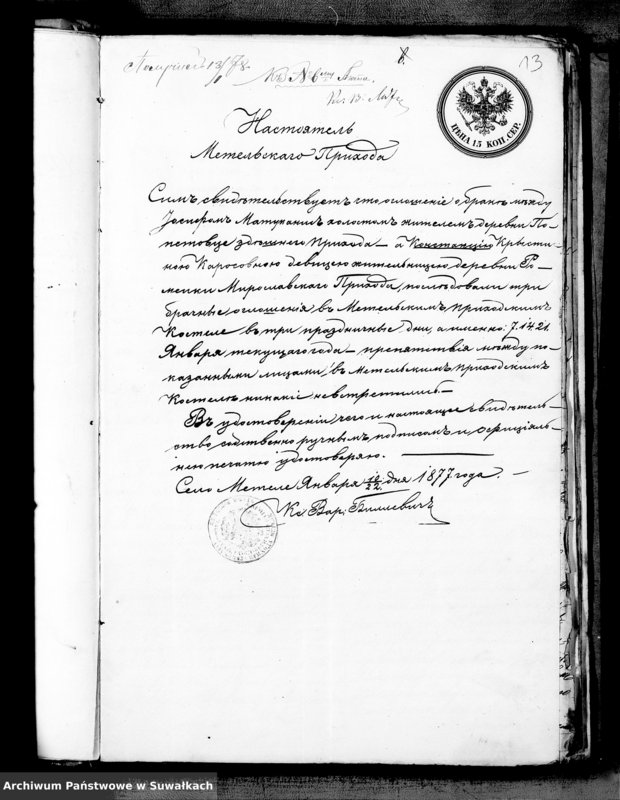 13
Къ № 6му Акта.
ЦѢНА 15 КОП. СЕР.
Настоятель
Метельскаго Прихода
Симъ свидѣтельствуетъ что оглошеніе о бракѣ между
Іосифомъ Матуканисъ холостомъ жителемъ деревни По-
петовце здѣшнего Прихода — а Констанціею Крысти-
ною Каросовною девицею жительницею деревни Ро-
мейки Мирославскаго Прихода, послѣдовали три
брачные оглошенія въ Метельскимъ приходскимъ
Костеле въ три праздничные дни, а именно: 7. 14. 21.
Января текущаго года — препятствія между по-
казанными лицами, въ Метельскимъ приходскимъ
Костелѣ никакіе не встретились —
Въ удостовереніи чего и настоящее свидѣтель-
ство собственно ручнымъ подписомъ и оффиціаль-
ною печатью удостоверяю.
Село Метеле Января 10/22 дня 1877 года. —
Кс Вар: Билевичъ
Archiwum Państwowe w Suwałkach